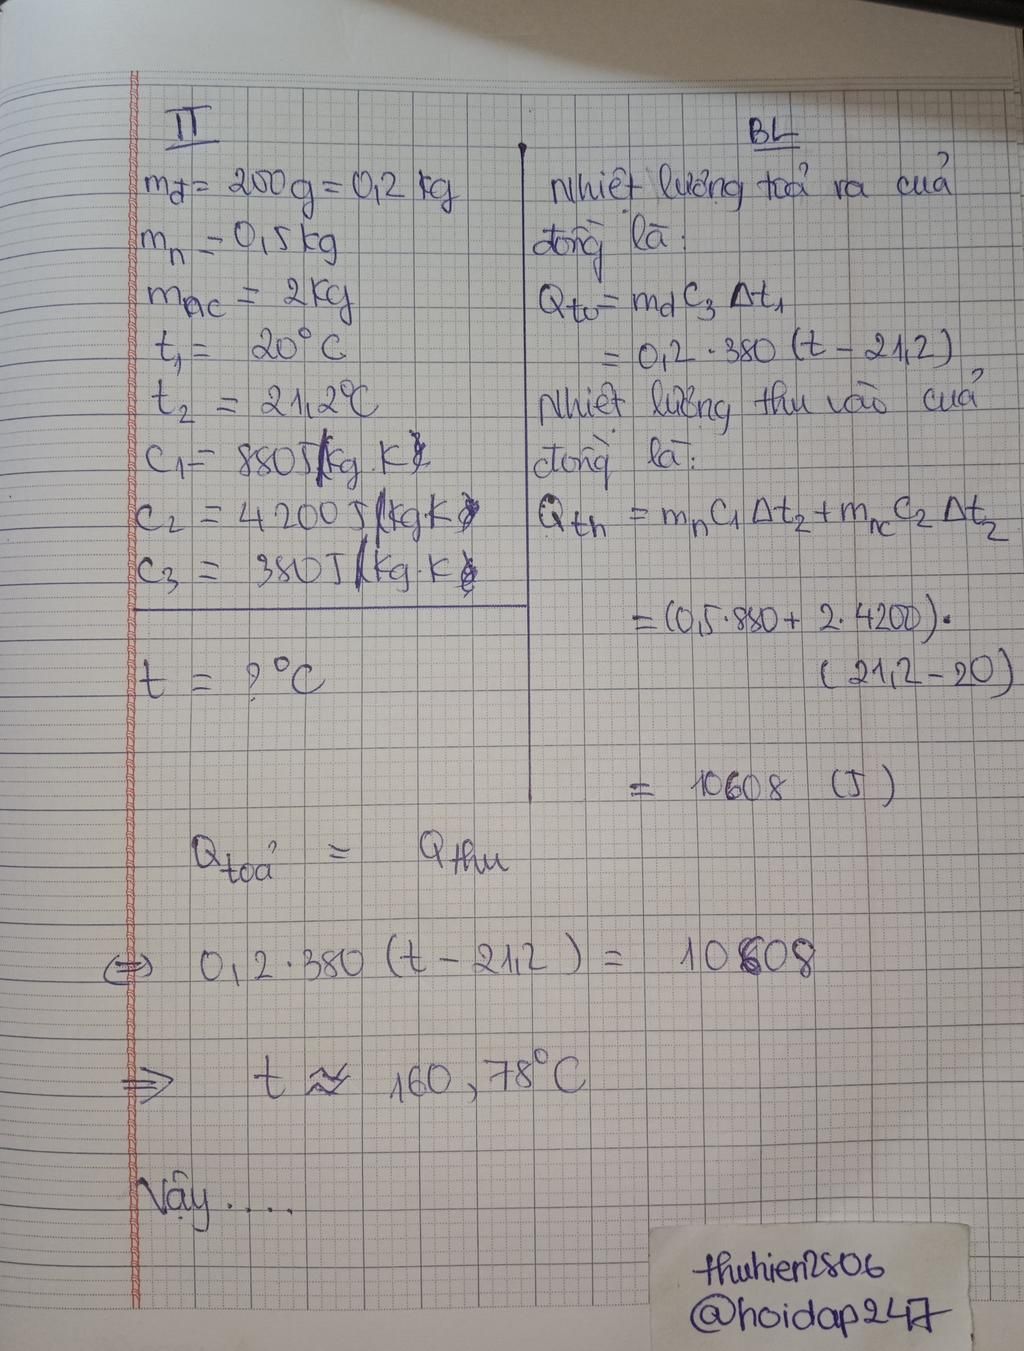 TT
m_đ = 200g = 0,2 kg
m_n = 0,5kg
m_nc = 2kg
t₁ = 20°C
t₂ = 21,2°C
C₁ = 880J/kg.K
C₂ = 4200J/kg.K
C₃ = 380J/kg.K
t = ?°C
BL
Nhiệt lượng toả ra của
đồng là:
Q_to = m_đ C₃ Δt₁
= 0,2 . 380 (t - 21,2)
Nhiệt lượng thu vào của
đồng là:
Q_th = m_n C₁ Δt₂ + m_nc C₂ Δt₂
= (0,5.880 + 2.4200).
(21,2 - 20)
= 10608 (J)
Q_toả = Q_thu
(=) 0,2.380 (t - 21,2) = 10608
=> t ≈ 160,78°C
Vậy.....
thuhien2806
@hoidap247